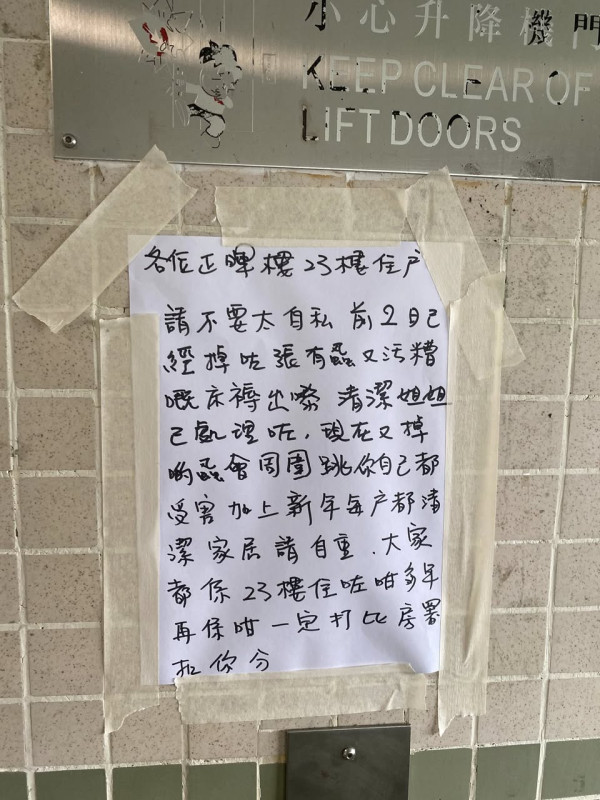 小心升降機門
KEEP CLEAR OF
LIFT DOORS
各位正睥樓23樓住户
請不要太自私 前2日已
經掉咗張有蝨又污糟
嘅床褥出嚟 清潔姐姐
已處理咗，現在又掉
啲蝨會周圍跳你自己都
受害 加上新年每户都清
潔家居請自重．大家
都係23樓住咗咁多年
再係咁一定打比房署
扣你分